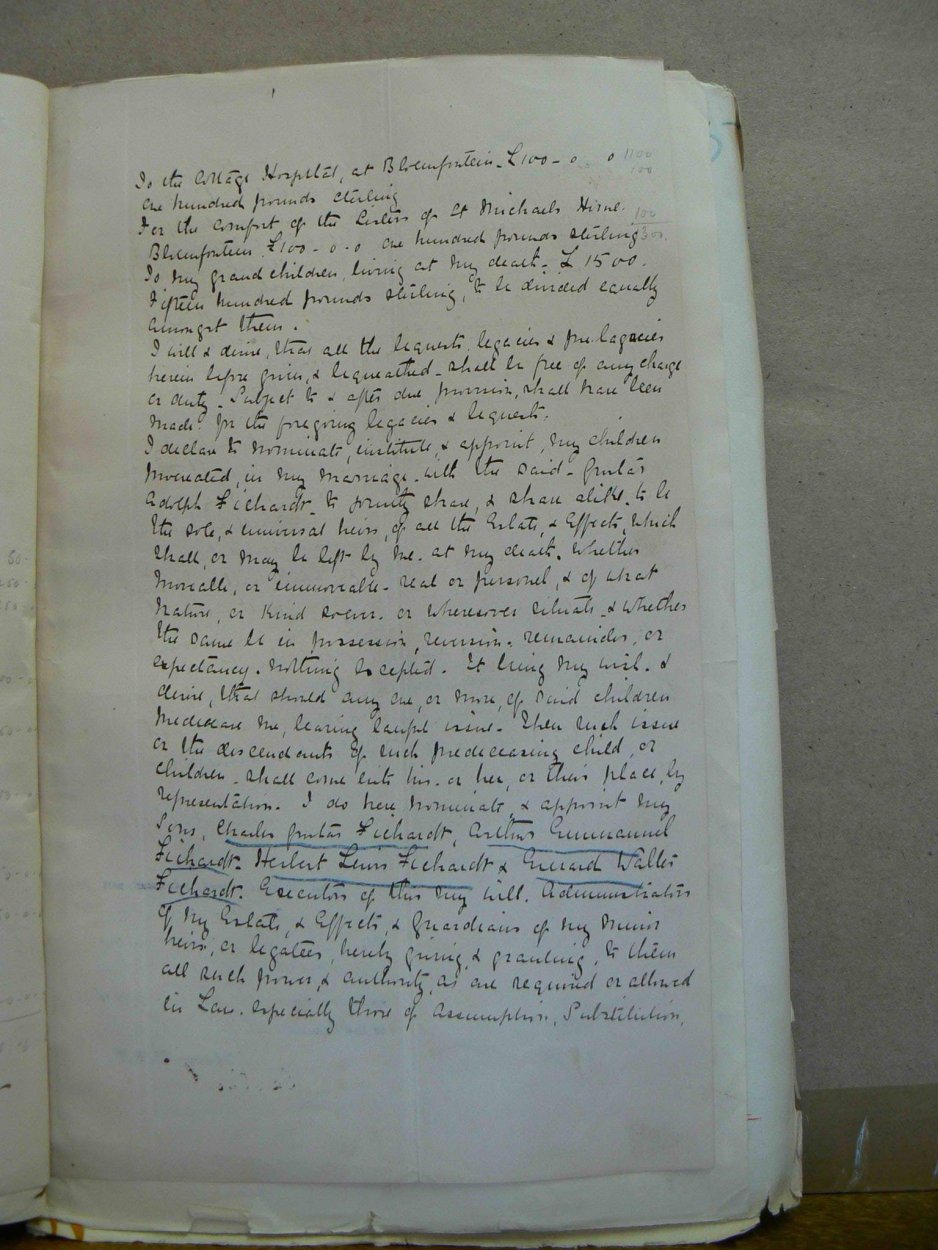 To the Cottage Hospital, at Bloemfontein - £100 - 0 0 1100
one hundred pounds sterling 100
For the comfort of the Sisters of St Michaels Home. 100
Bloemfontein £100 - 0 - 0 one hundred pounds sterling 1300.
To my grand children, living at my death - £1500.
Fifteen hundred pounds sterling, to be divided equally
amongst them.
I will & desire, that all the bequests, legacies & pre legacies
herein before given, & bequeathed - shall be free of any charge
or duty - Subject to & after due provision, shall have been
made for the foregoing legacies & bequests.
I declare to nominate, institute, & appoint, my children
procreated, in my marriage with the said - Gustav
Adolph Fichardt - to jointly share, & share alike, to be
the sole, & universal heirs, of all the Estate, & Effects, which
shall, or may be left by me - at my death. Whether
moveable, or immoveable - real or personel, & of what
nature, or kind soever - or wheresoever situate, & whether
the same be in possession, reversion, remainder, or
expectancy. Nothing Excepted. It being my will - &
desire, that should any one, or more, of said children
predecease me, leaving lawful issue - then such issue
or the descendants of such predeceasing child, or
children - shall come into his - or her, or their place, by
representation. I do here nominate, & appoint my
Sons, Charles Gustav Fichardt, Arthur Emmanuel
Fichardt - Herbert Lewis Fichardt & Everard Walter
Fichardt. Executors of this my will. Administrators
of my Estate, & Effects, & Guardians of my minor
heirs, or legatees, hereby giving, & granting, to them
all such power, & authority, as are required or allowed
in Law - especially those of Assumption, Substitution,